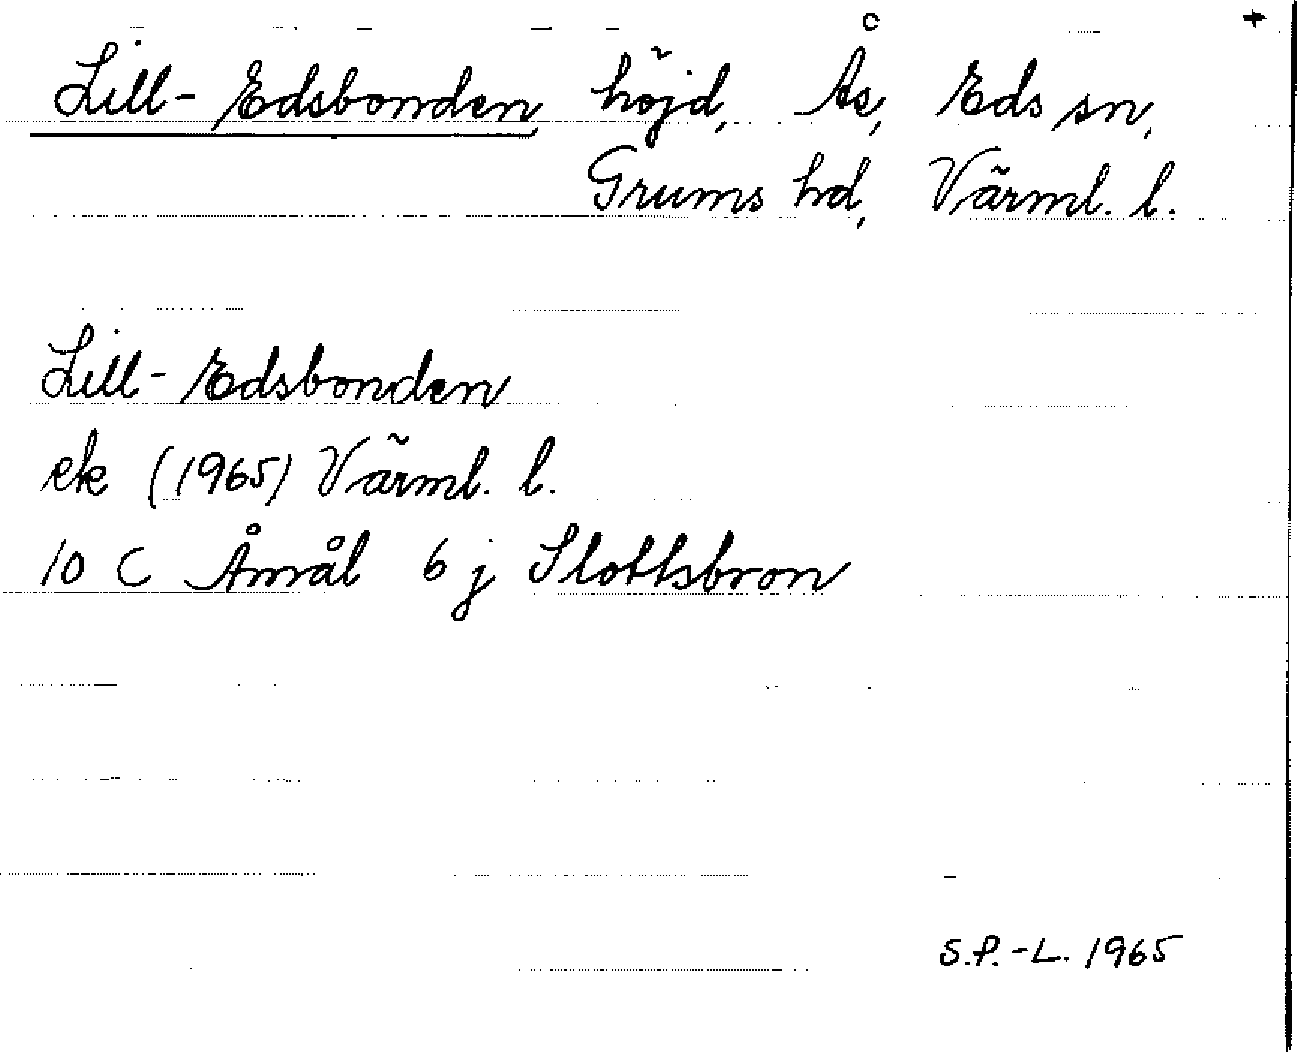 Lill-Edsbonden höjd, Ås, Eds sn,
Grums hd, Värml. l.
Lill-Edsbonden
ek (1965) Värml. l.
10 C Åmål 6 j Slottsbron
S.P.-L. 1965